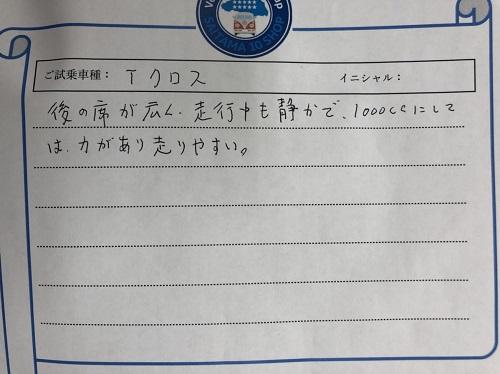 SAITAMA 10 SHOP
ご試乗車種： Tクロス イニシャル：
後の席が広く、走行中も静かで、1000ccにして
は、力があり走りやすい。